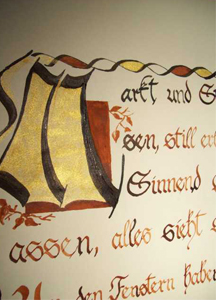 Markt und S
sen, still er
Sinnend
assen, alles sieht s
An den Fenstern haben